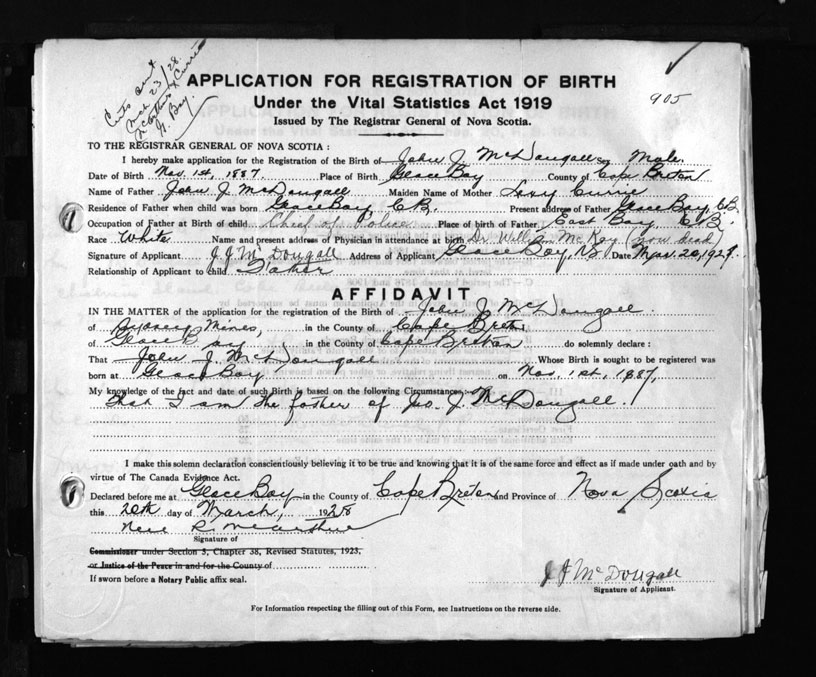 Certs sent
Mch 23/28
McArthur & Currie
G. Bay.
905
APPLICATION FOR REGISTRATION OF BIRTH
Under the Vital Statistics Act 1919
Issued by The Registrar General of Nova Scotia.
TO THE REGISTRAR GENERAL OF NOVA SCOTIA :
I hereby make application for the Registration of the Birth of John J. McDougall Sex Male.
Date of Birth Nov. 1st, 1887. Place of Birth Glace Bay County of Cape Breton
Name of Father John J. McDougall Maiden Name of Mother Currie
Residence of Father when child was born Glace Bay C.B. Present address of Father Glace Bay, C.B.
Occupation of Father at Birth of child Chief of Police Place of birth of Father East Bay C.B.
Race White Name and present address of Physician in attendance at birth Dr William McKay (now dead)
Signature of Applicant J.J. McDougall Address of Applicant Glace Bay, N.S. Date Mar. 20, 192
Relationship of Applicant to child Father
AFFIDAVIT
IN THE MATTER of the application for the registration of the Birth of John J. McDougall
of Sydney Mines, in the County of Cape Breton
of Glace Bay in the County of Cape Breton do solemnly declare :
That John J. McDougall Whose Birth is sought to be registered was
born at Glace Bay on Nov. 1st, 1887,
My knowledge of the fact and date of such Birth is based on the following Circumstances
that I am the father of Jno. J. McDougall.
I make this solemn declaration conscientiously believing it to be true and knowing that it is of the same force and effect as if made under oath and by
virtue of The Canada Evidence Act.
Declared before me at Glace Bay in the County of Cape Breton and Province of Nova Scotia
this 20th day of March, 1928
Neil R. McArthur
Signature of
Commissioner under Section 3, Chapter 38, Revised Statutes, 1923,
or Justice of the Peace in and for the County of
If sworn before a Notary Public affix seal.
J J McDougall
Signature of Applicant.
For Information respecting the filling out of this Form, see Instructions on the reverse side.